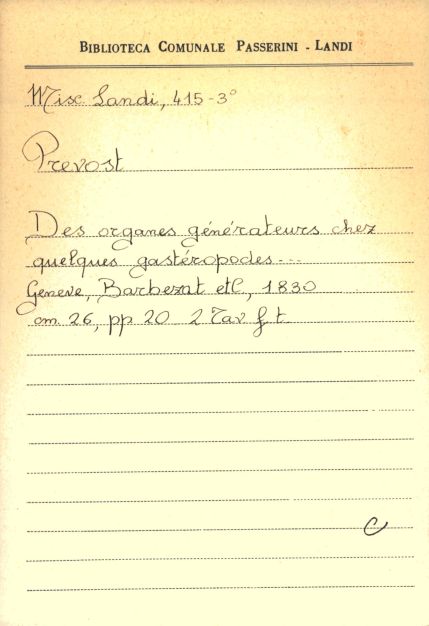 BIBLIOTECA COMUNALE PASSERINI - LANDI
Misc Landi, 415-3°
Prevost
Des organes générateurs chez
quelques gastéropodes---
Geneve, Barbezat etC, 1830
cm. 26, pp 20 2 Tav f. t.
C